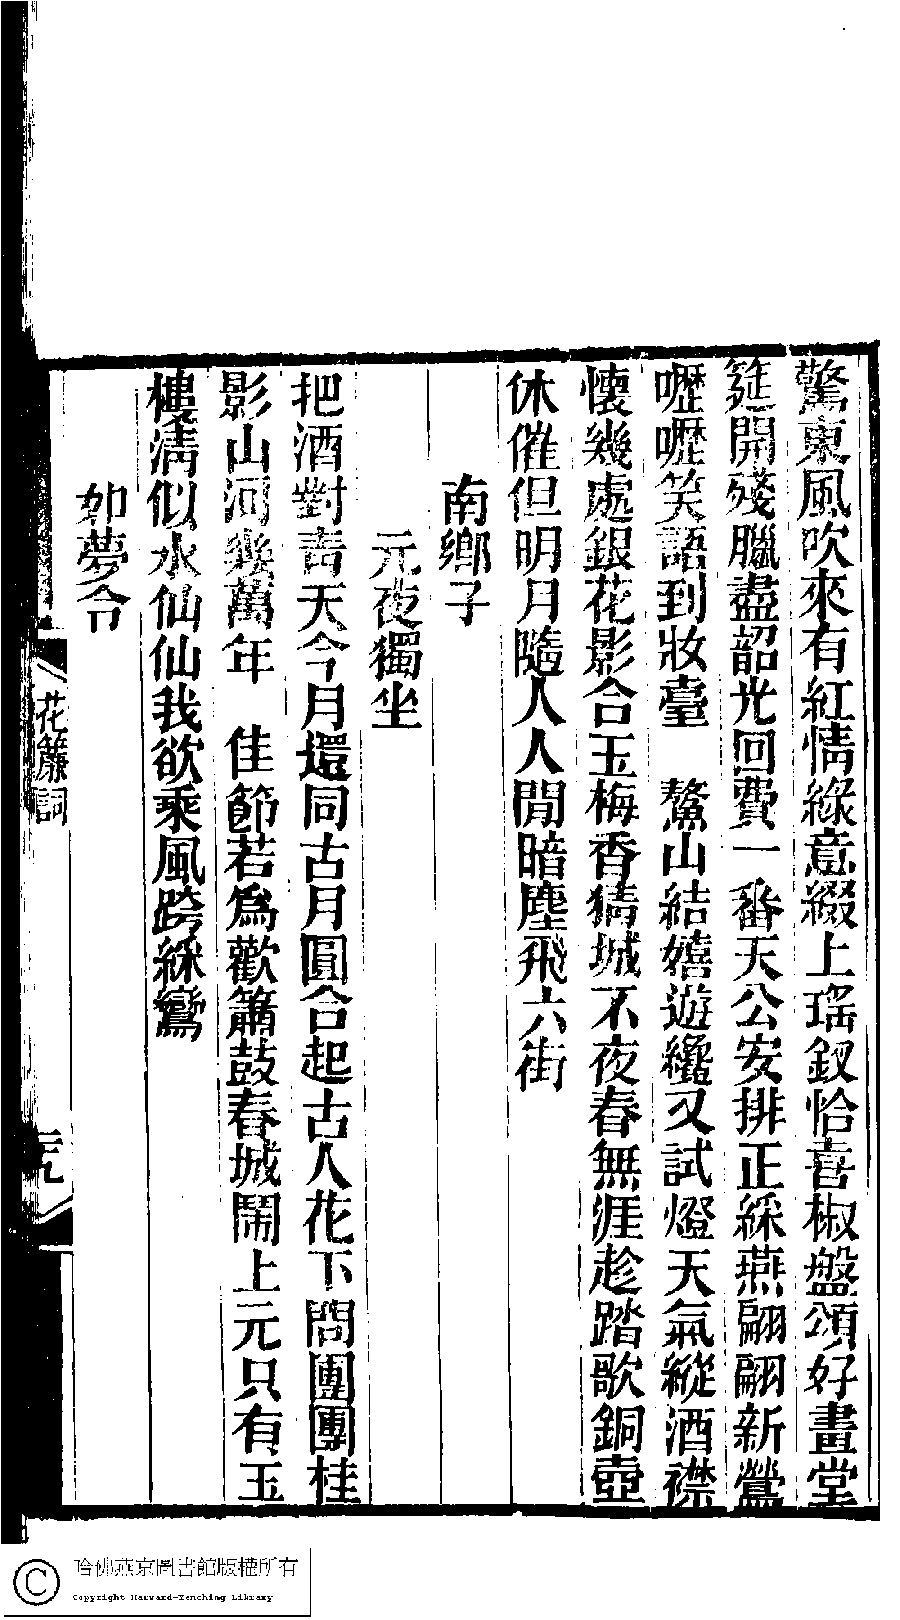 驚東風吹來有紅情綠意綴上瑤釵恰喜椒盤頌好畫堂
筵開殘臘盡韶光回費一番天公安排正綵燕翩翩新鶯
嚦嚦笑語到妝臺　鰲山結嬉遊纔又試燈天氣縱酒襟
懷幾處銀花影合玉梅香猜城不夜春無涯趁踏歌銅壺
休催但明月隨人人閒暗塵飛六街
南鄉子
元夜獨坐
把酒對青天今月還同古月圓合起古人花下問團團桂
影山河幾萬年　佳節若爲歡簫鼓春城鬧上元只有玉
樓清似水仙仙我欲乘風跨綵鸞
如夢令
花簾詞
哈佛燕京圖書館版權所有
Copyright Harvard-Yenching Library